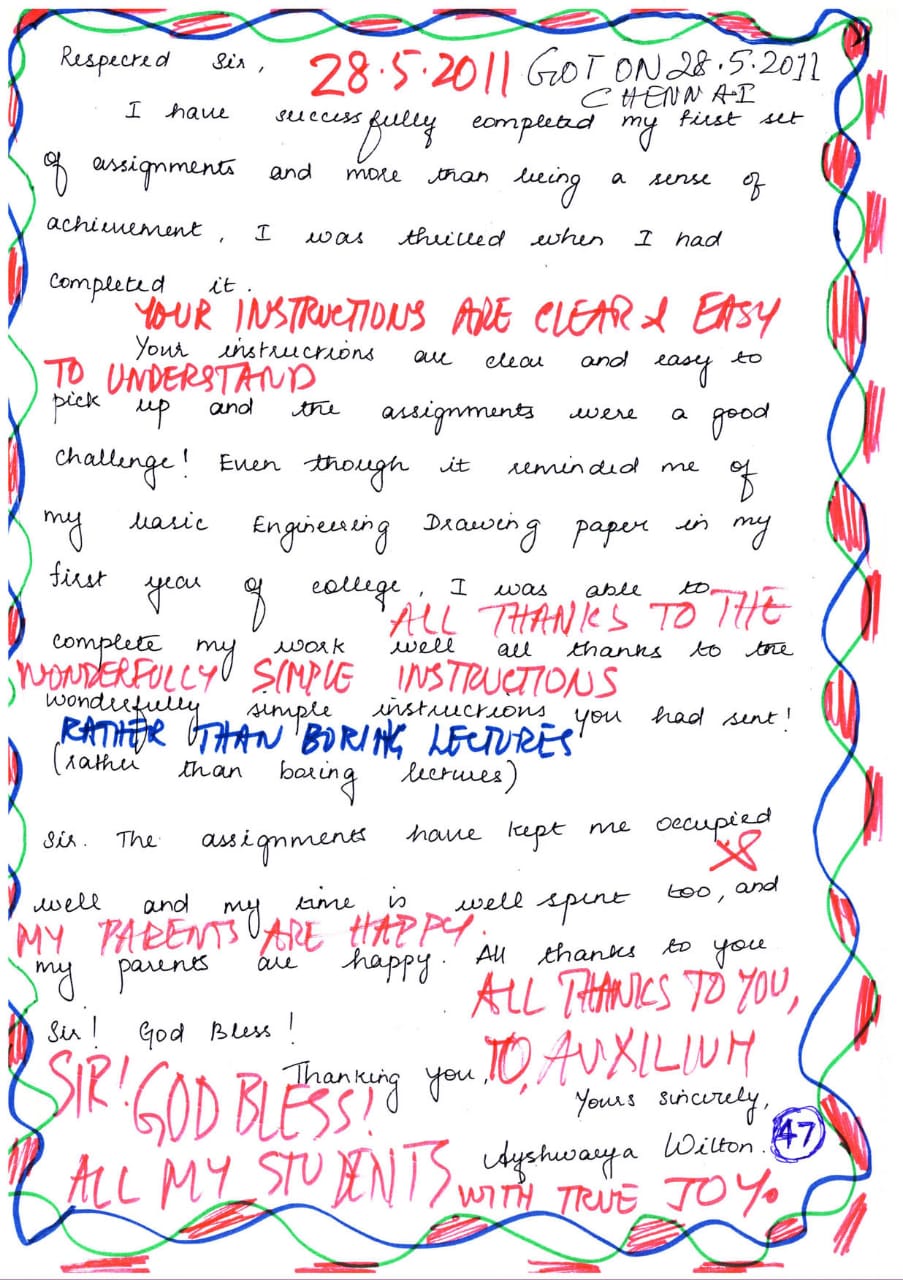 Respected Sir, 28.5.2011 GOT ON 28.5.2011
CHENNAI
I have successfully completed my first set
of assignments and more than being a sense of
achievement, I was thrilled when I had
completed it.
YOUR INSTRUCTIONS ARE CLEAR & EASY
Your instructions are clear and easy to
TO UNDERSTAND
pick up and the assignments were a good
challenge! Even though it reminded me of
my basic Engineering Drawing paper in my
first year of college, I was able to
ALL THANKS TO THE
complete my work well all thanks to the
WONDERFULLY SIMPLE INSTRUCTIONS
wonderfully simple instructions you had sent!
RATHER THAN BORING LECTURES
(rather than boring lectures)
Sir. The assignments have kept me occupied
well and my time is well spent too, and
MY PARENTS ARE HAPPY.
my parents are happy. All thanks to you
ALL THANKS TO YOU,
Sir! God Bless!
SIR! GOD BLESS!
Thanking you, TO, AUXILIUM
Yours sincerely,
Ayshwarya Wilton. 47
ALL MY STUDENTS WITH TRUE JOY.